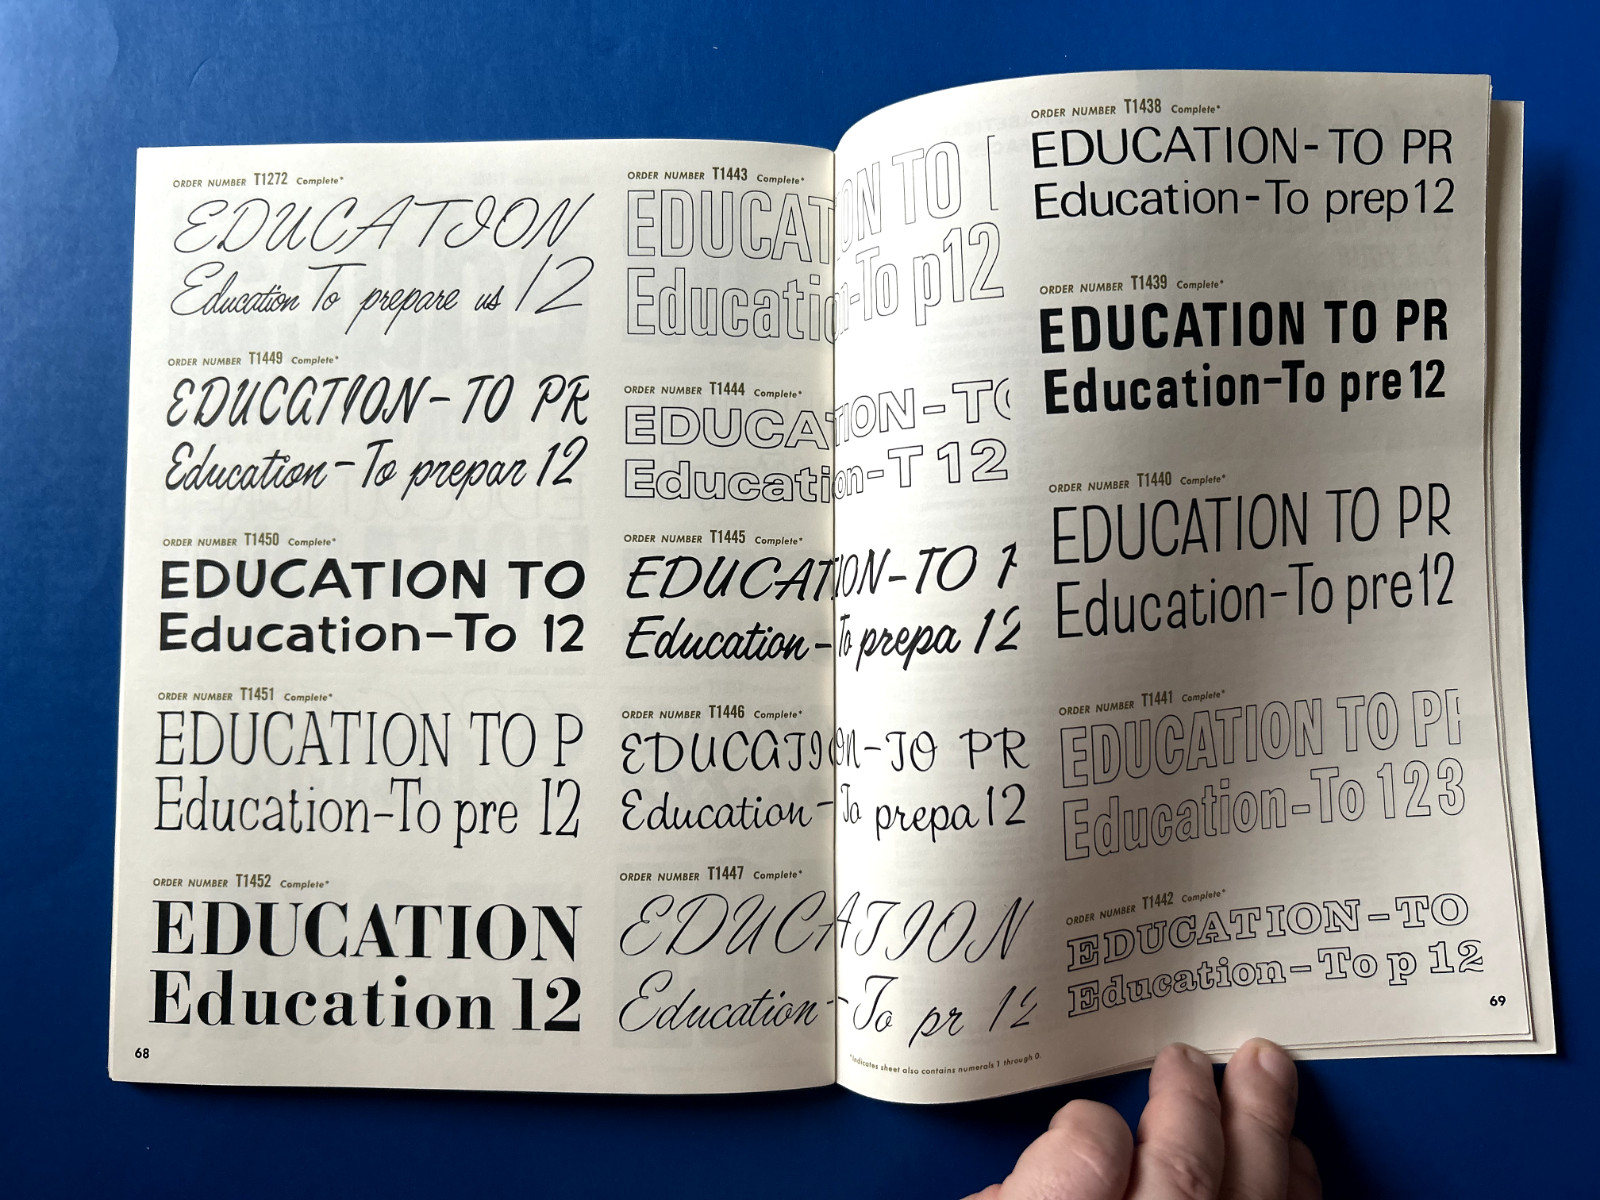 ORDER NUMBER T1272 Complete*
EDUCATION
Education To prepare us 12
ORDER NUMBER T1449 Complete*
EDUCATION-TO PR
Education-To prepar 12
ORDER NUMBER T1450 Complete*
EDUCATION TO
Education-To 12
ORDER NUMBER T1451 Complete*
EDUCATION TO P
Education-To pre 12
ORDER NUMBER T1452 Complete*
EDUCATION
Education 12
68
ORDER NUMBER T1443 Complete*
EDUCATION TO
Education-To p12
ORDER NUMBER T1444 Complete*
EDUCATION-TO
Education-T 12
ORDER NUMBER T1445 Complete*
EDUCATION-TO P
Education-To prepa 12
ORDER NUMBER T1446 Complete*
EDUCATION-TO PR
Education-To prepa 12
ORDER NUMBER T1447 Complete*
EDUCATION
Education-To pr 12
*Indicates sheet also contains numerals 1 through 0.
ORDER NUMBER T1438 Complete*
EDUCATION-TO PR
Education-To prep12
ORDER NUMBER T1439 Complete*
EDUCATION TO PR
Education-To pre 12
ORDER NUMBER T1440 Complete*
EDUCATION TO PR
Education-To pre12
ORDER NUMBER T1441 Complete*
EDUCATION TO PR
Education-To 123
ORDER NUMBER T1442 Complete*
EDUCATION-TO
Education-To p 12
69